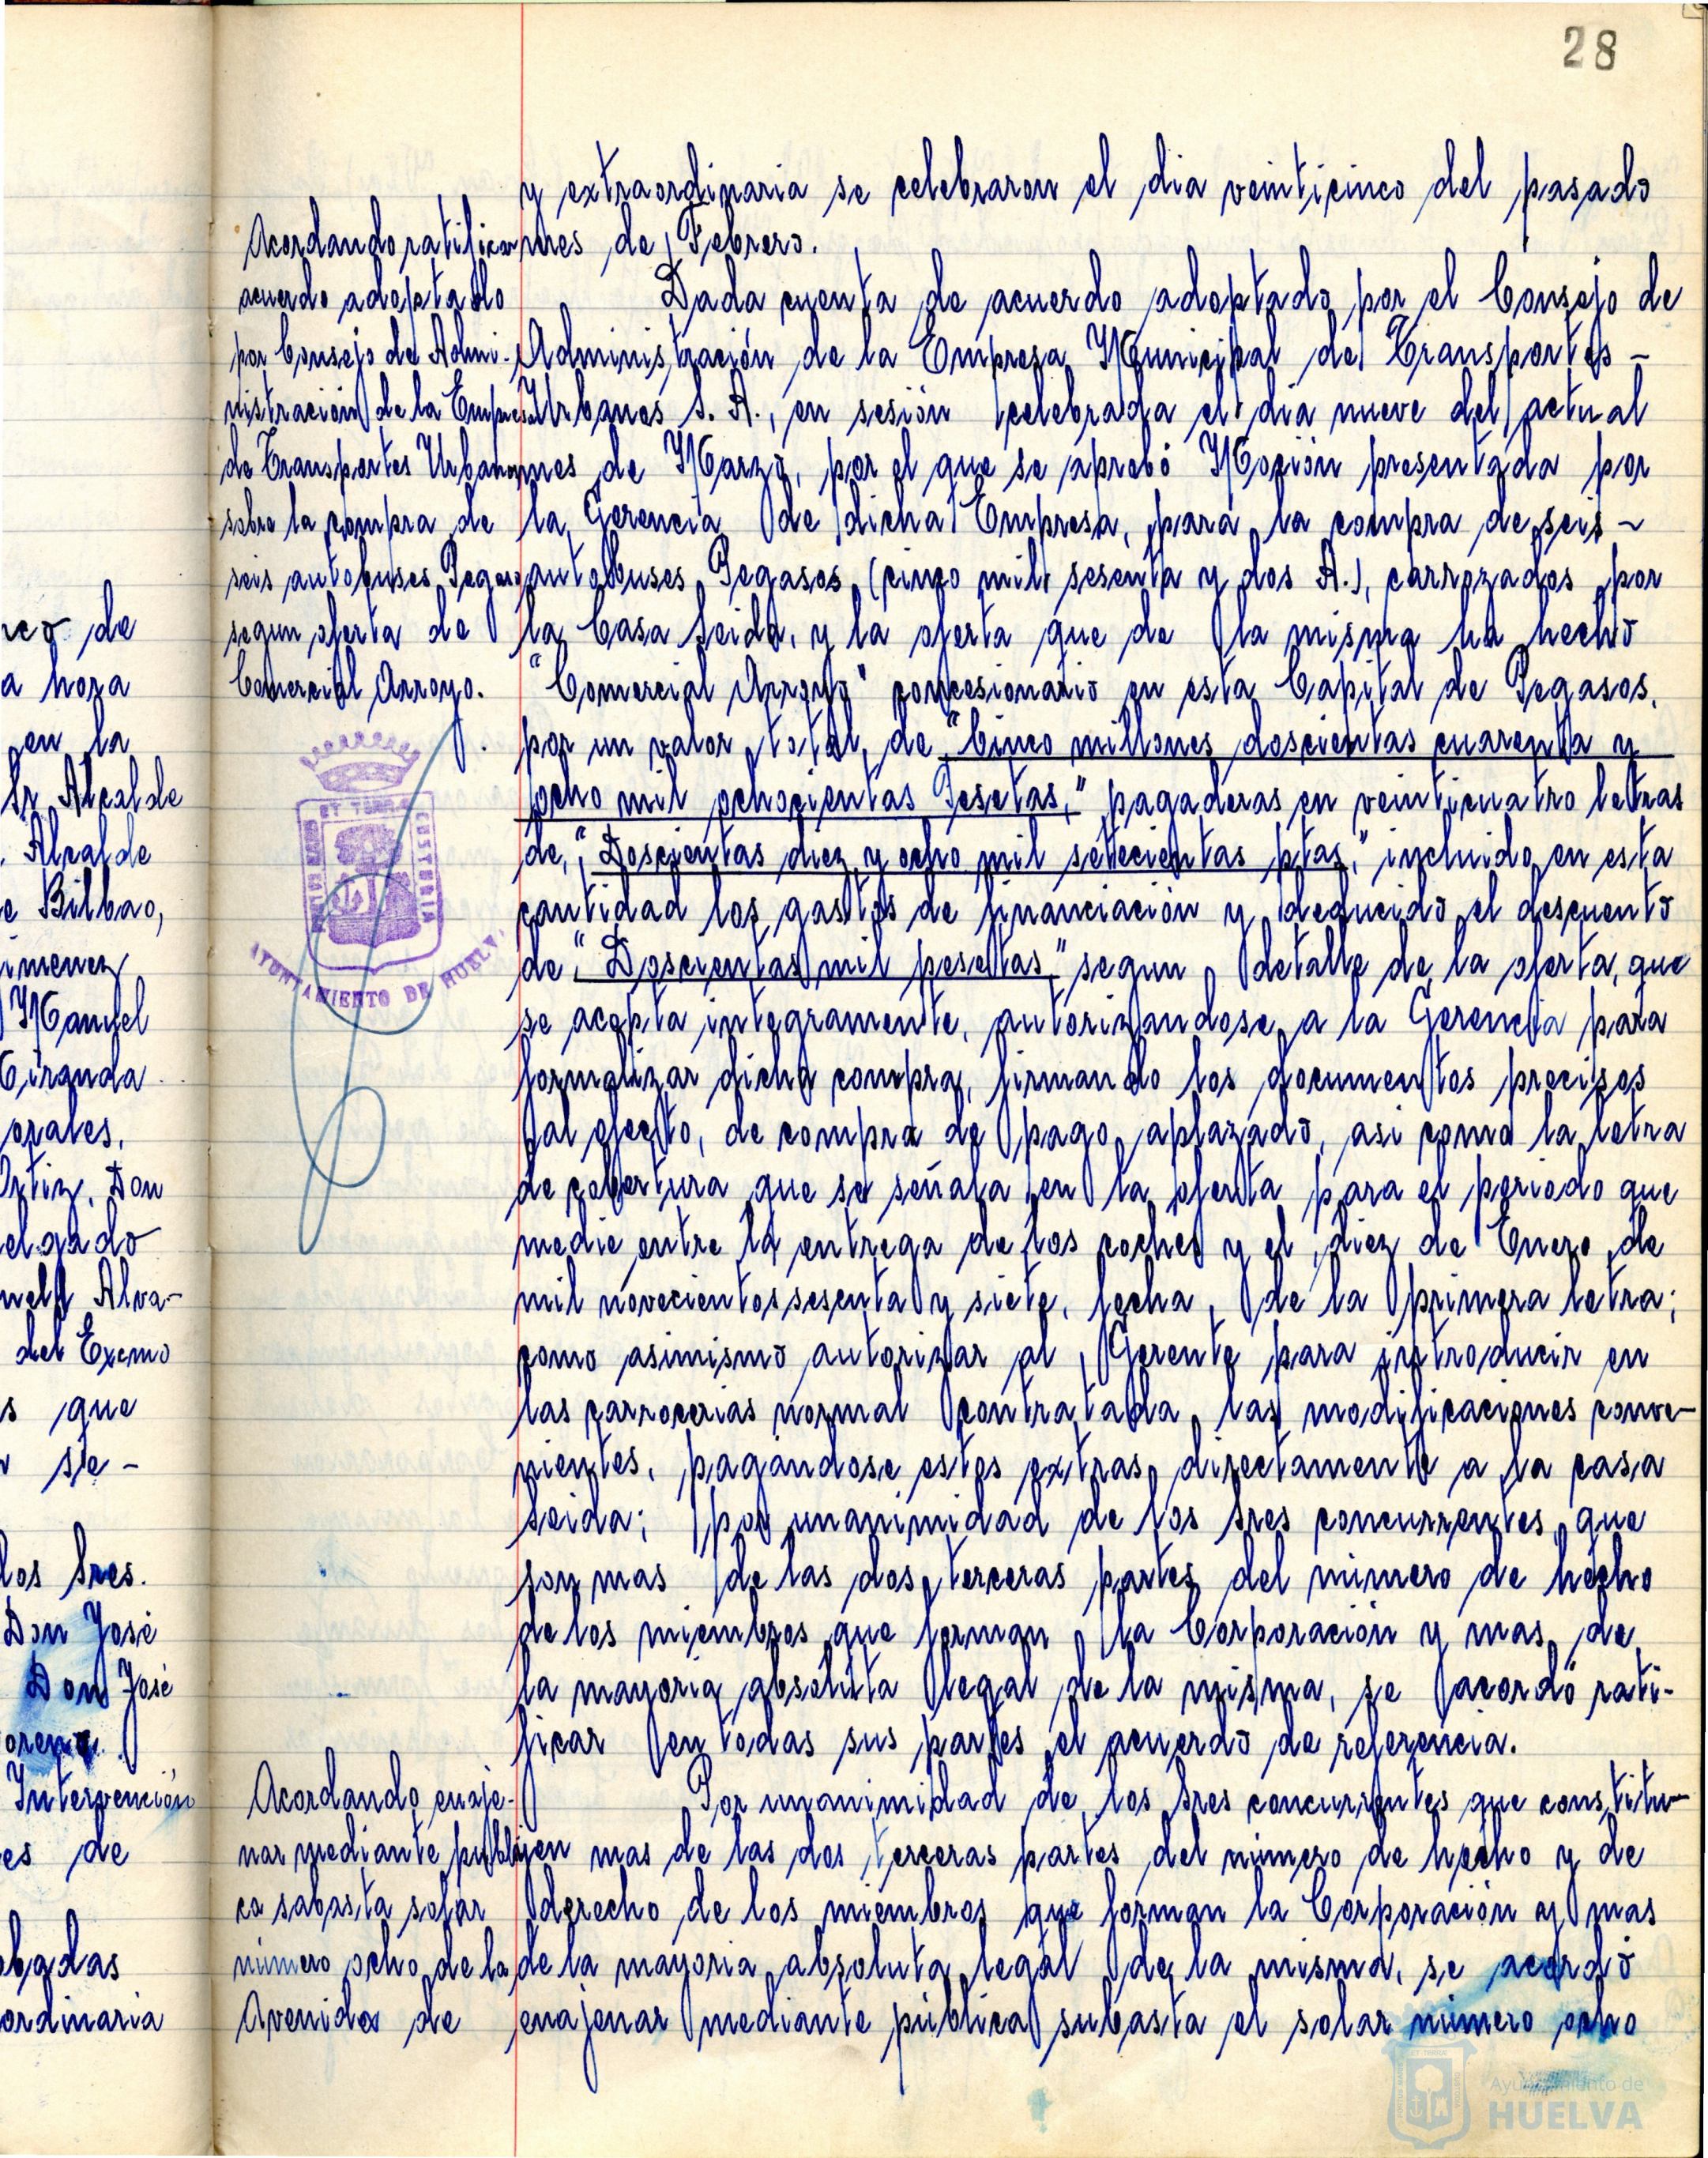 rco de
a hora
en la
Sr Alcalde
Alcalde
e Bilbao,
imenez
Manuel
Tiranda
orales,
Ortiz, Don
elgado
Alva-
del Excmo
s que
se-
los Sres.
Don José
Don José
oreno
Intervención
es de
obadas
ordinaria
28
Acordando ratificar
acuerdo adoptado
por Consejo de Admi-
nistración de la Empresa
de Transportes Urbanos
sobre la compra de
seis autobuses Pegaso
segun oferta de
Comercial Arroyo.
AYUNTAMIENTO DE HUELVA
y extraordinaria se celebraron el dia veinticinco del pasado
mes de Febrero.
Dada cuenta de acuerdo adoptado por el Consejo de
Administración de la Empresa Municipal de Transportes -
Urbanos S. A., en sesión celebrada el dia nueve del actual
mes de Marzo, por el que se aprobó Moción presentada por
la Gerencia de dicha Empresa, para la compra de seis -
autobuses Pegasos (cinco mil sesenta y dos A.), carrozados por
la Casa Seida, y la oferta que de la misma ha hecho
"Comercial Arroyo" concesionario en esta Capital de Pegasos,
por un valor total de "Cinco millones doscientas cuarenta y
ocho mil ochocientas Pesetas," pagaderas en veinticuatro letras
de, "Doscientas diez y ocho mil setecientas ptas," incluido en esta
cantidad los gastos de financiación y deducido el descuento
de "Doscientas mil pesetas" segun detalle de la oferta, que
se acepta integramente, autorizandose a la Gerencia para
formalizar dicha compra, firmando los documentos precisos
al efecto, de compra de pago aplazado, asi como la letra
de cobertura que se señala en la oferta para el periodo que
medie entre la entrega de los coches y el diez de Enero de
mil novecientos sesenta y siete, fecha de la primera letra;
como asimismo autorizar al Gerente para introducir en
las carrocerias normal contratada, las modificaciones conve-
nientes, pagandose estos extras directamente a la casa
Seida; por unanimidad de los Sres concurrentes que
son mas de las dos terceras partes del número de hecho
de los miembros que forman la Corporación y mas de
la mayoria absoluta legal de la misma, se acordó rati-
ficar en todas sus partes el acuerdo de referencia.
Acordando enaje-
nar mediante publi-
ca sabasta solar
número ocho de la
Avenida de
Por unanimidad de los Sres concurrentes que constitu-
yen mas de las dos terceras partes del número de hecho y de
derecho de los miembros que forman la Corporación y mas
de la mayoria absoluta legal de la misma, se acordó
enajenar mediante pública subasta el solar número ocho
Ayuntamiento de
HUELVA